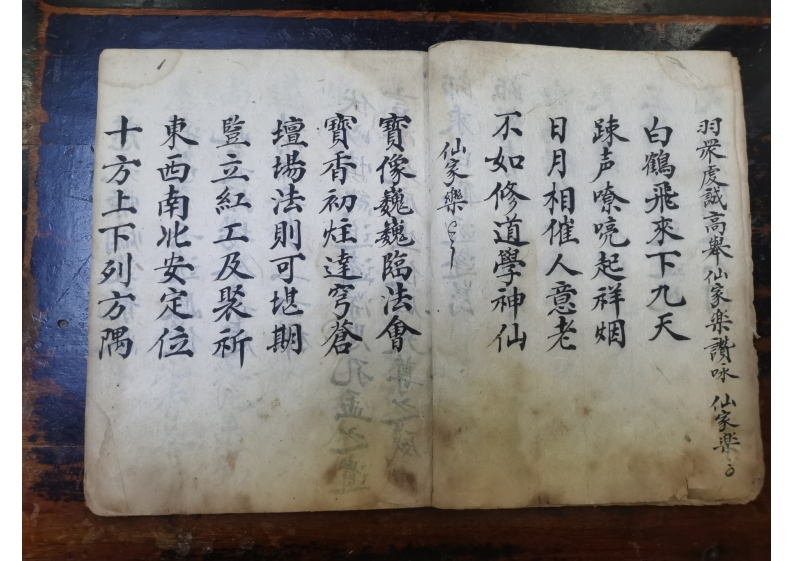 羽衆虔誠高舉仙家楽讚咏 仙家楽
白鶴飛來下九天
踈声嘹喨起祥烟
日月相催人意老
不如修道學神仙
仙家樂
寶像巍巍臨法會
寶香初炷達穹蒼
壇場法則可堪期
竪立紅工及聚祈
東西南北安定位
十方上下列方隅